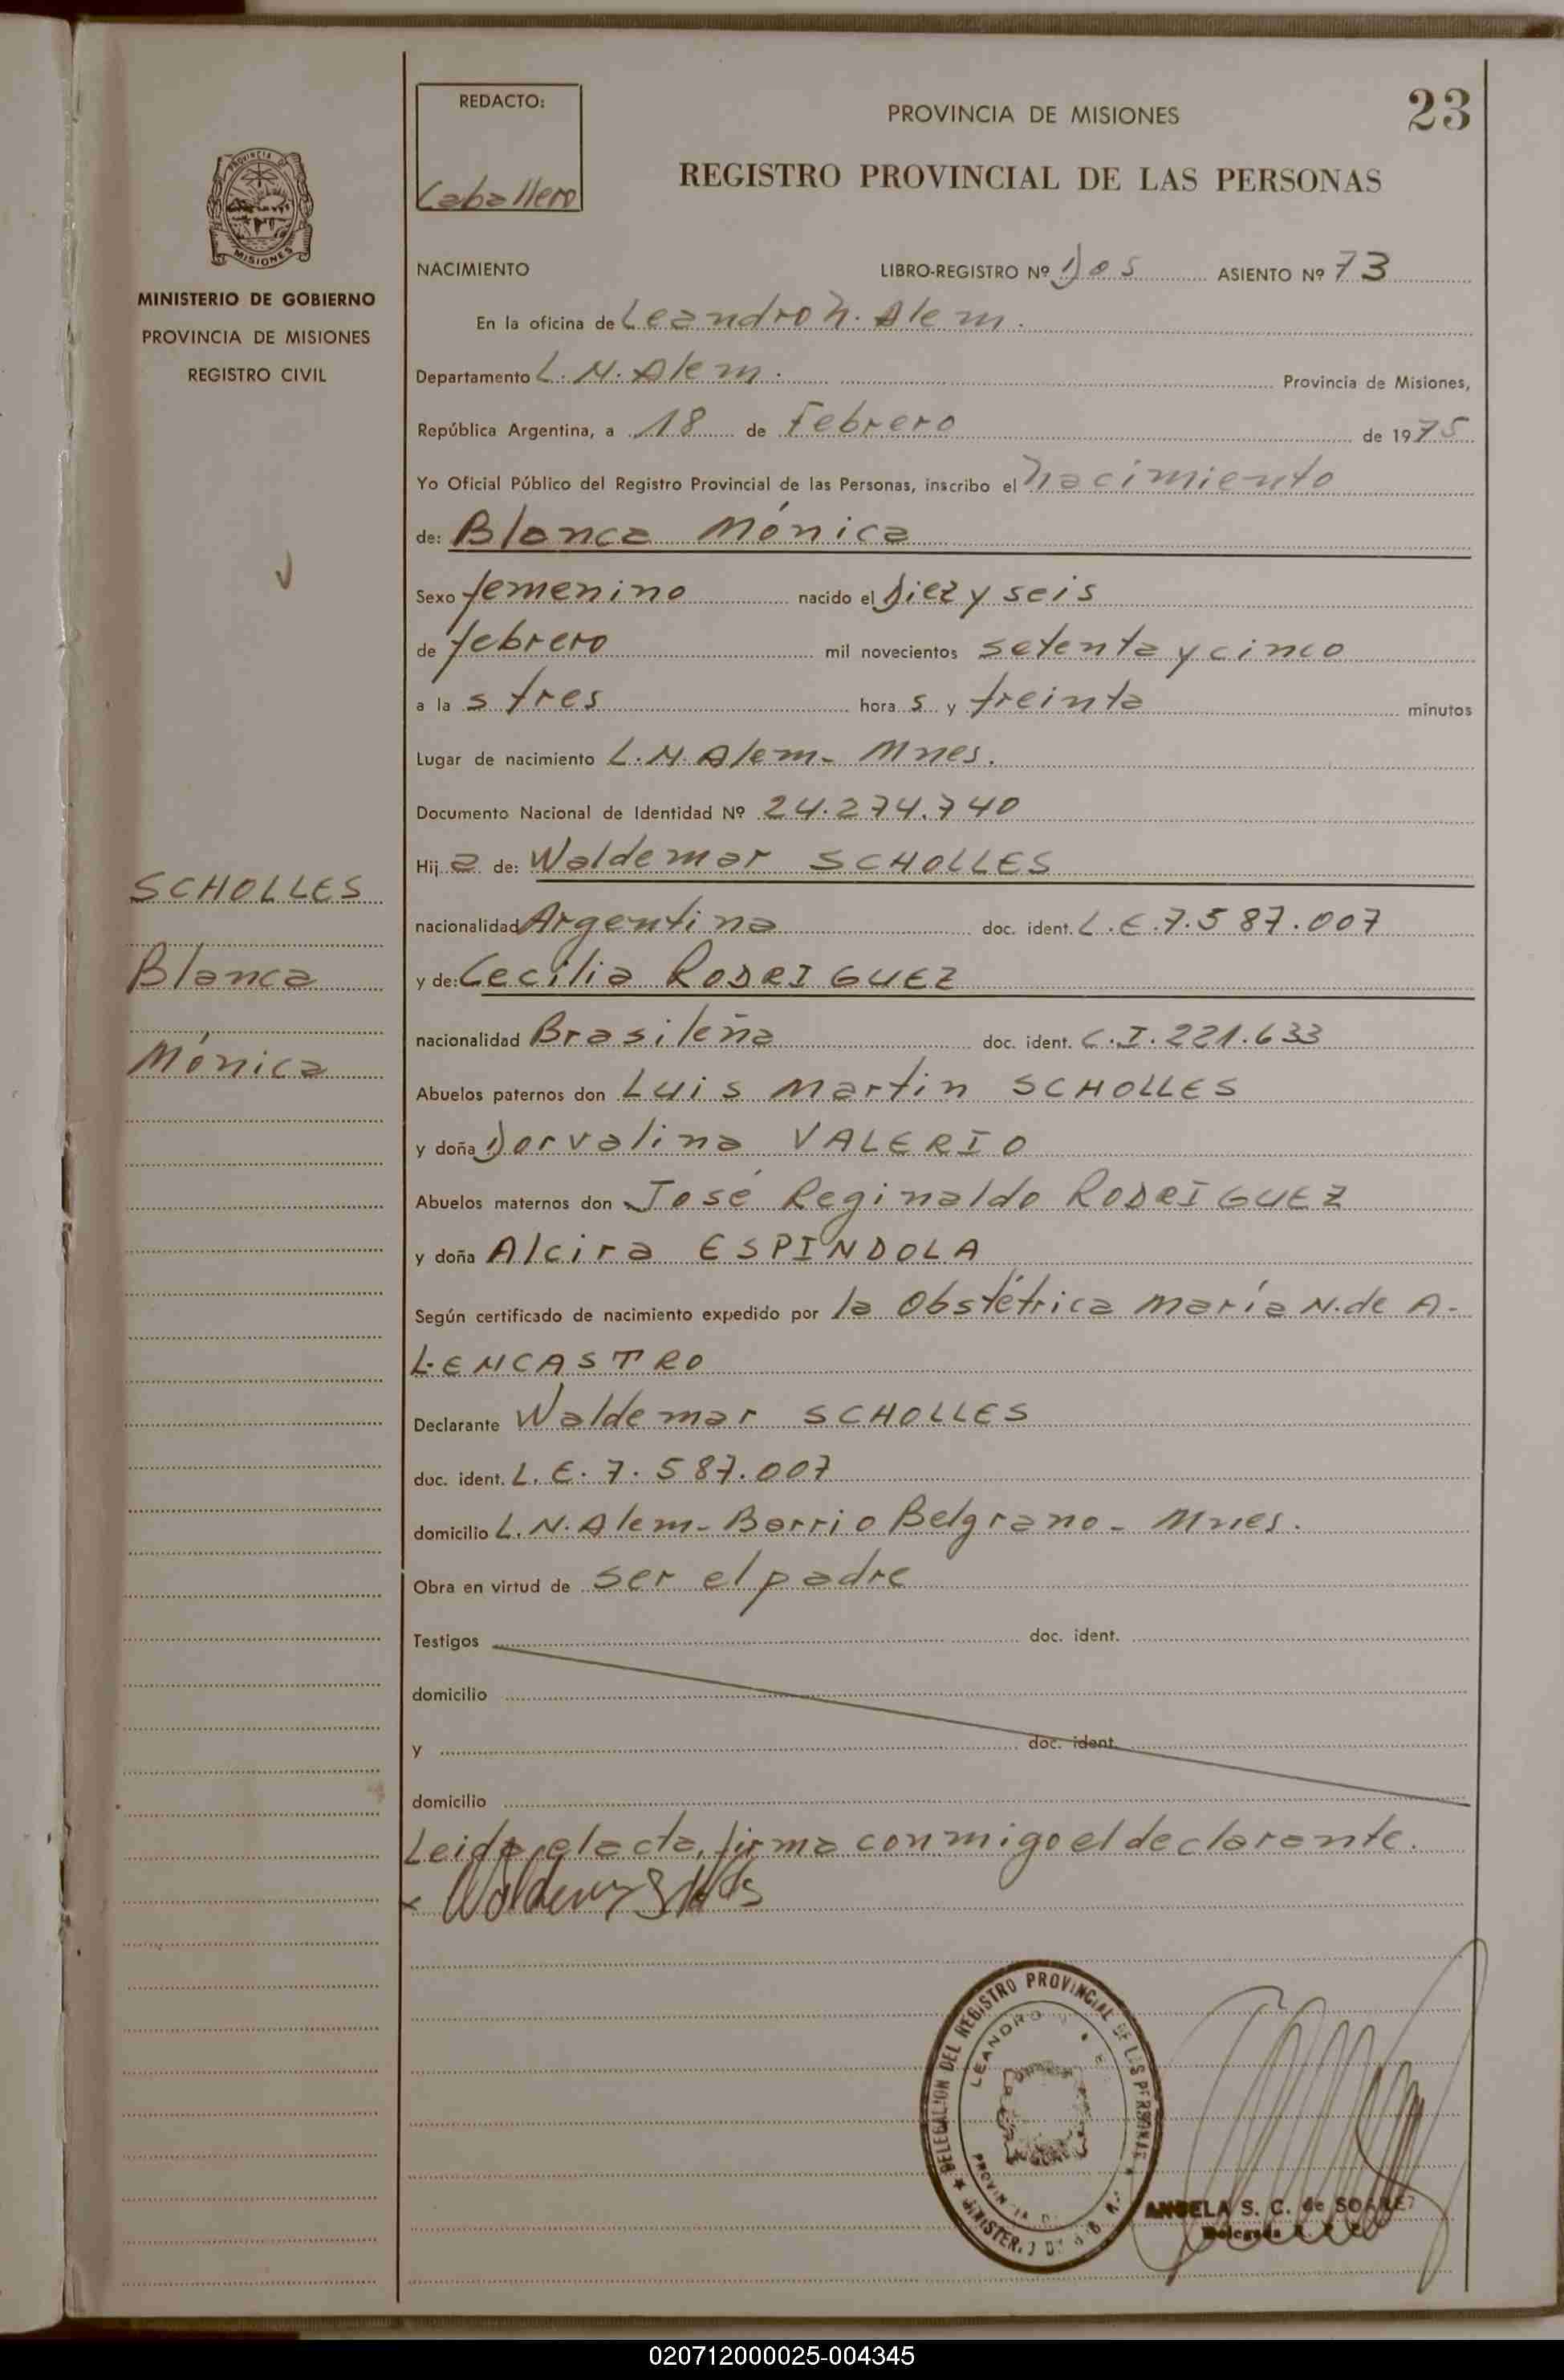 REDACTO:
Caballero
PROVINCIA DE MISIONES
23
REGISTRO PROVINCIAL DE LAS PERSONAS
PROVINCIA DE
MISIONES
MINISTERIO DE GOBIERNO
PROVINCIA DE MISIONES
REGISTRO CIVIL
NACIMIENTO LIBRO-REGISTRO Nº Dos ASIENTO Nº 73
En la oficina de Leandro N. Alem.
Departamento L. N. Alem. Provincia de Misiones,
República Argentina, a 18 de Febrero de 1975
Yo Oficial Público del Registro Provincial de las Personas, inscribo el nacimiento
de: Blanca Mónica
Sexo femenino nacido el Diez y seis
de febrero mil novecientos setenta y cinco
a la s tres hora s y treinta minutos
Lugar de nacimiento L. N. Alem - Mnes.
Documento Nacional de Identidad Nº 24.274.740
Hij a de: Waldemar SCHOLLES
nacionalidad Argentina doc. ident. L.E.7.587.007
y de: Cecilia RODRIGUEZ
nacionalidad Brasileña doc. ident. C.I.221.633
Abuelos paternos don Luis Martin SCHOLLES
y doña Dorvalina VALERIO
Abuelos maternos don José Reginaldo RODRIGUEZ
y doña Alcira ESPINDOLA
Según certificado de nacimiento expedido por la Obstétrica María N. de A-
LENCASTRO
Declarante Waldemar SCHOLLES
doc. ident. L.E. 7.587.007
domicilio L.N. Alem - Barrio Belgrano - Mnes.
Obra en virtud de ser el padre
Testigos doc. ident.
domicilio
y doc. ident.
domicilio
Leida el acta, firma conmigo el declarante.
SCHOLLES
Blanca
Mónica
DELEGACION DEL REGISTRO PROVINCIAL DE LAS PERSONAS
LEANDRO
ANGELA S. C. de SOAREZ
Delegada
020712000025-004345